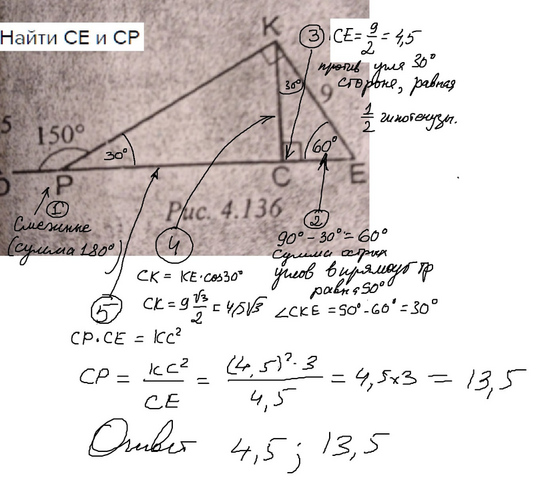 Найти CE и CP
K
③ CE = 9/2 = 4,5
против угла 30°
стороне, равная
1/2 гипотенузы.
30°
9
5
150°
30°
60°
P
C
E
Рис. 4.136
①
Смежные
(сумма 180°)
④
②
90° - 30° = 60°
сумма острых
углов в прямоуг тр
равна 90°
∠CKE = 90° - 60° = 30°
CK = KE·cos30°
CK = 9 √3/2 = 4,5√3
⑤
CP·CE = KC²
CP = KC²/CE = (4,5)²·3/4,5 = 4,5×3 = 13,5
Ответ 4,5; 13,5